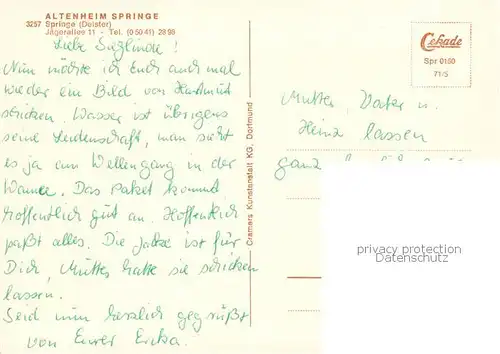 ALTENHEIM SPRINGE
3257 Springe (Deister)
Jägerallee 11 - Tel. (0 50 41) 28 98
Liebe Sieglinde!
Nun möchte ich Euch auch mal
wieder ein Bild von Hartmut
schicken. Wasser ist übrigens
seine Leidenschaft, man sieht
es ja am Wellengang in der
Wanne. Das Paket kommt
hoffentlich gut an. Hoffentlich
paßt alles. Die Jacke ist für
Dich, Mutter hatte sie schicken
lassen.
Seid nun herzlich gegrüßt
von Eurer Erika.
Cramers Kunstanstalt KG, Dortmund
Cekade
Spr 0180
71/5
Mutter, Vater u.
Heinz lassen
ganz
privacy protection
Datenschutz